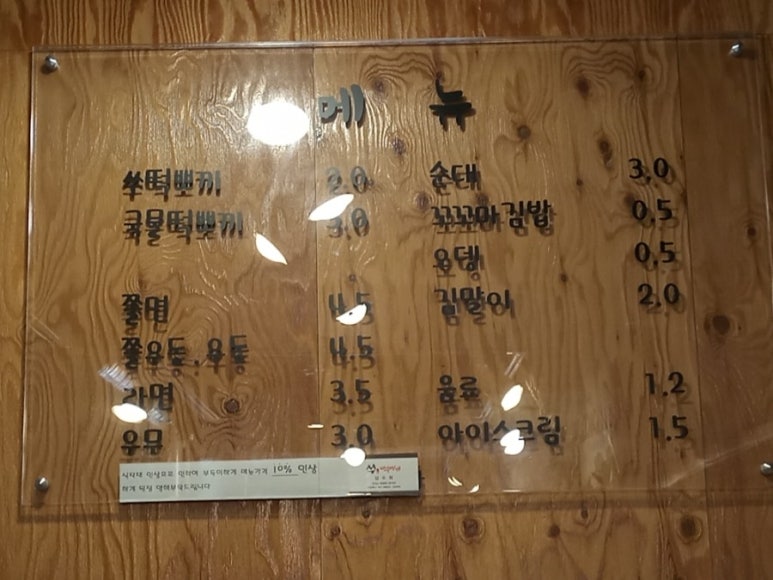 메뉴
쑥떡뽀끼 2,0
국물떡뽀끼 3,0
쫄면 4.5
쫄우동.우동 4.5
라면 3.5
우무 3.0
순대 3,0
꼬꼬마김밥 0,5
오뎅 0,5
김말이 2,0
음료 1.2
아이스크림 1.5
식자재 인상으로 인하여 부득이하게 메뉴가격 10% 인상
하게 되점 양해부탁드립니다